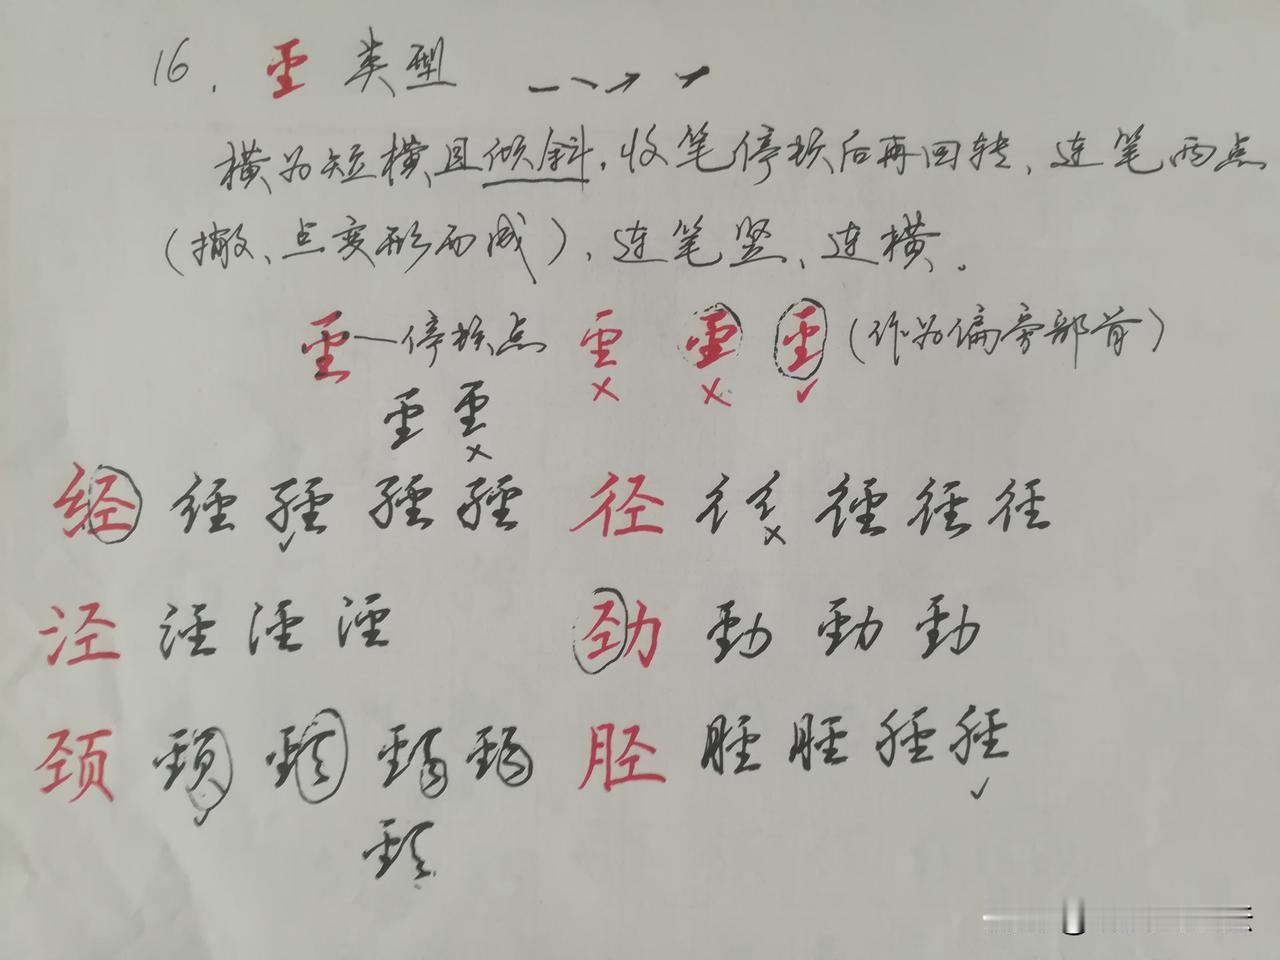 16. 圣 类型
横为短横且倾斜，收笔停挫后再回转、连笔两点
（撇、点变形而成）、连笔竖、连横。
圣—停挫点 圣 × 圣 × 圣 ✓ （作为偏旁部首）
圣 圣 ×
经 経 経 ✓ 経 経 径 彳 彳 × 径 径 径
泾 泾 泾 泾 劲 劲 劲 劲
颈 颈 ✓ 颈 颈 颈 胫 胫 胫 胫 胫 ✓
颈